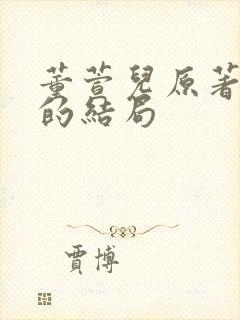 董萱兒原著
的結局
賈博